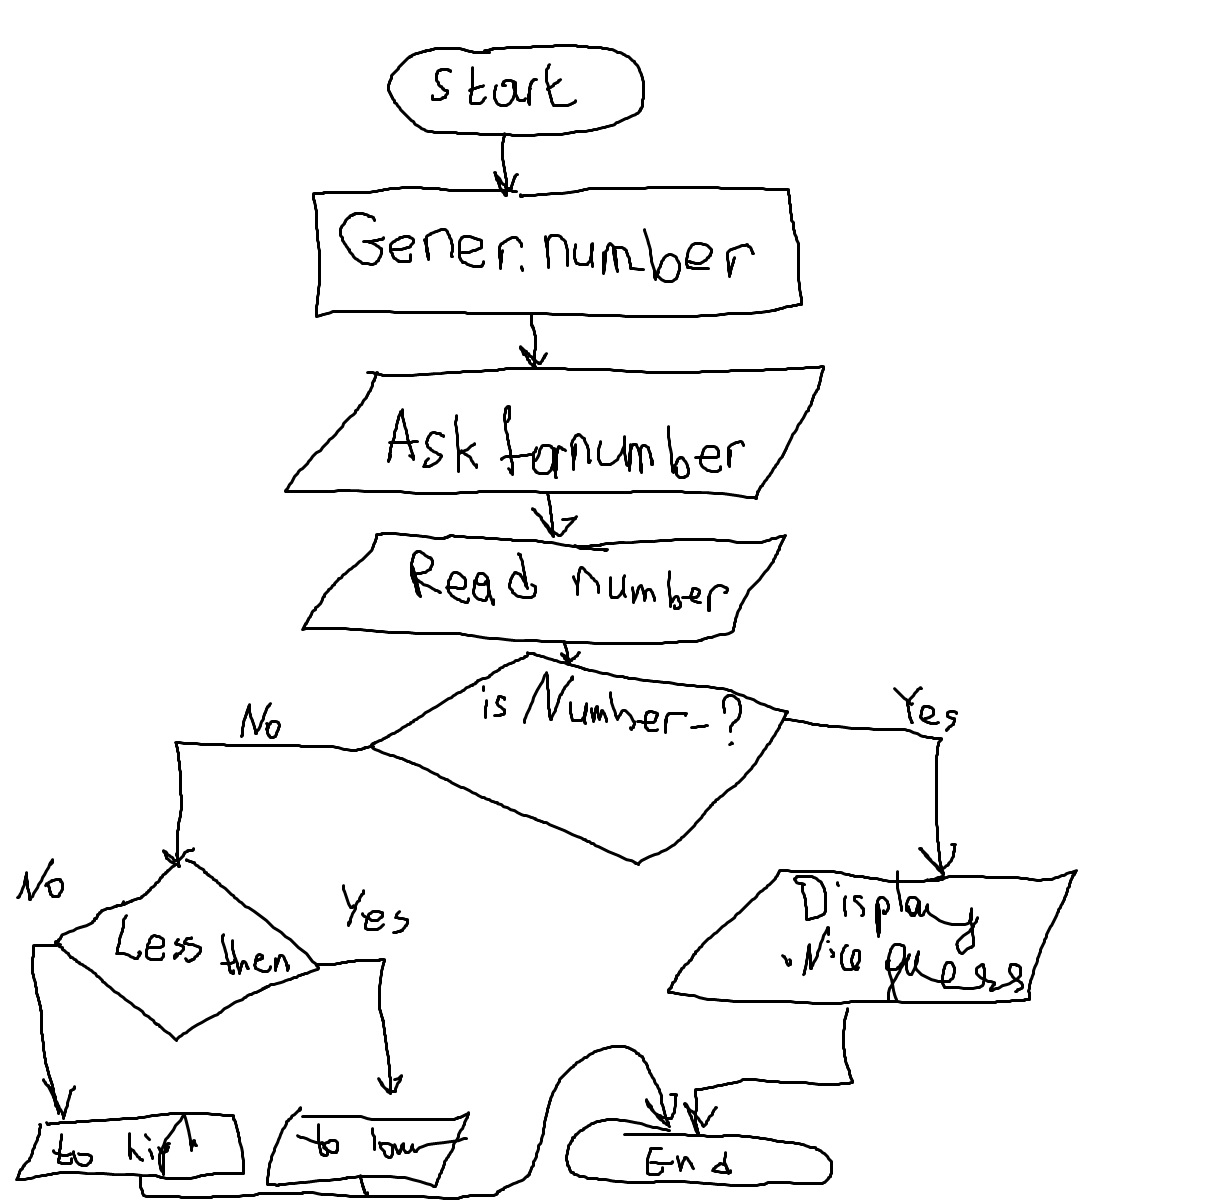 Start
Gener. number
Ask for number
Read number
is Number-?
No
Yes
No
Less then
Yes
Display
Nice guess
to high
to low
End